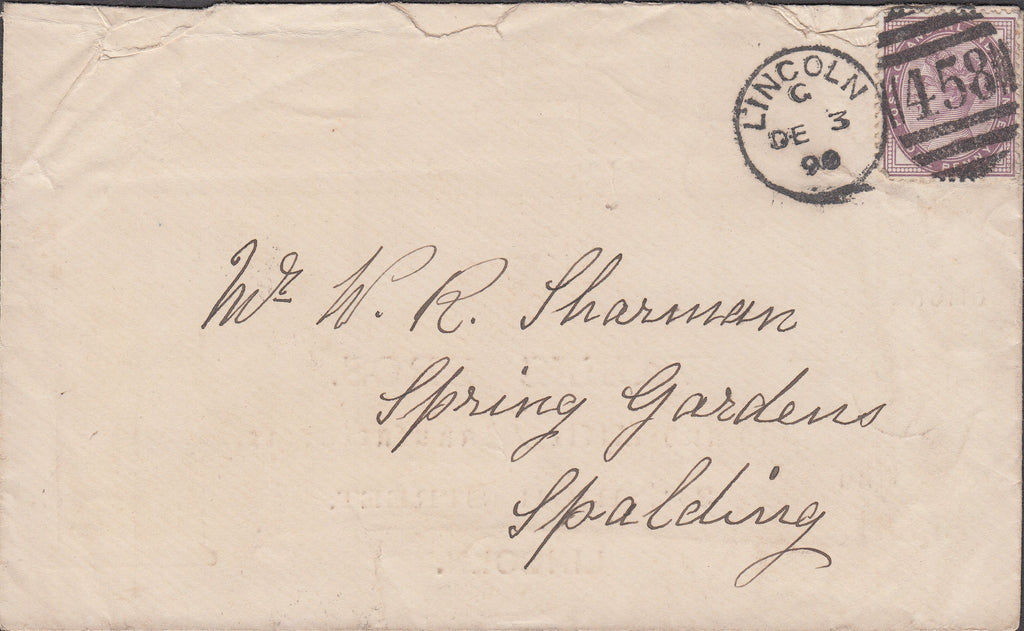 LINCOLN
G
DE 3
90
458
Mr W. R. Sharman
Spring Gardens
Spalding